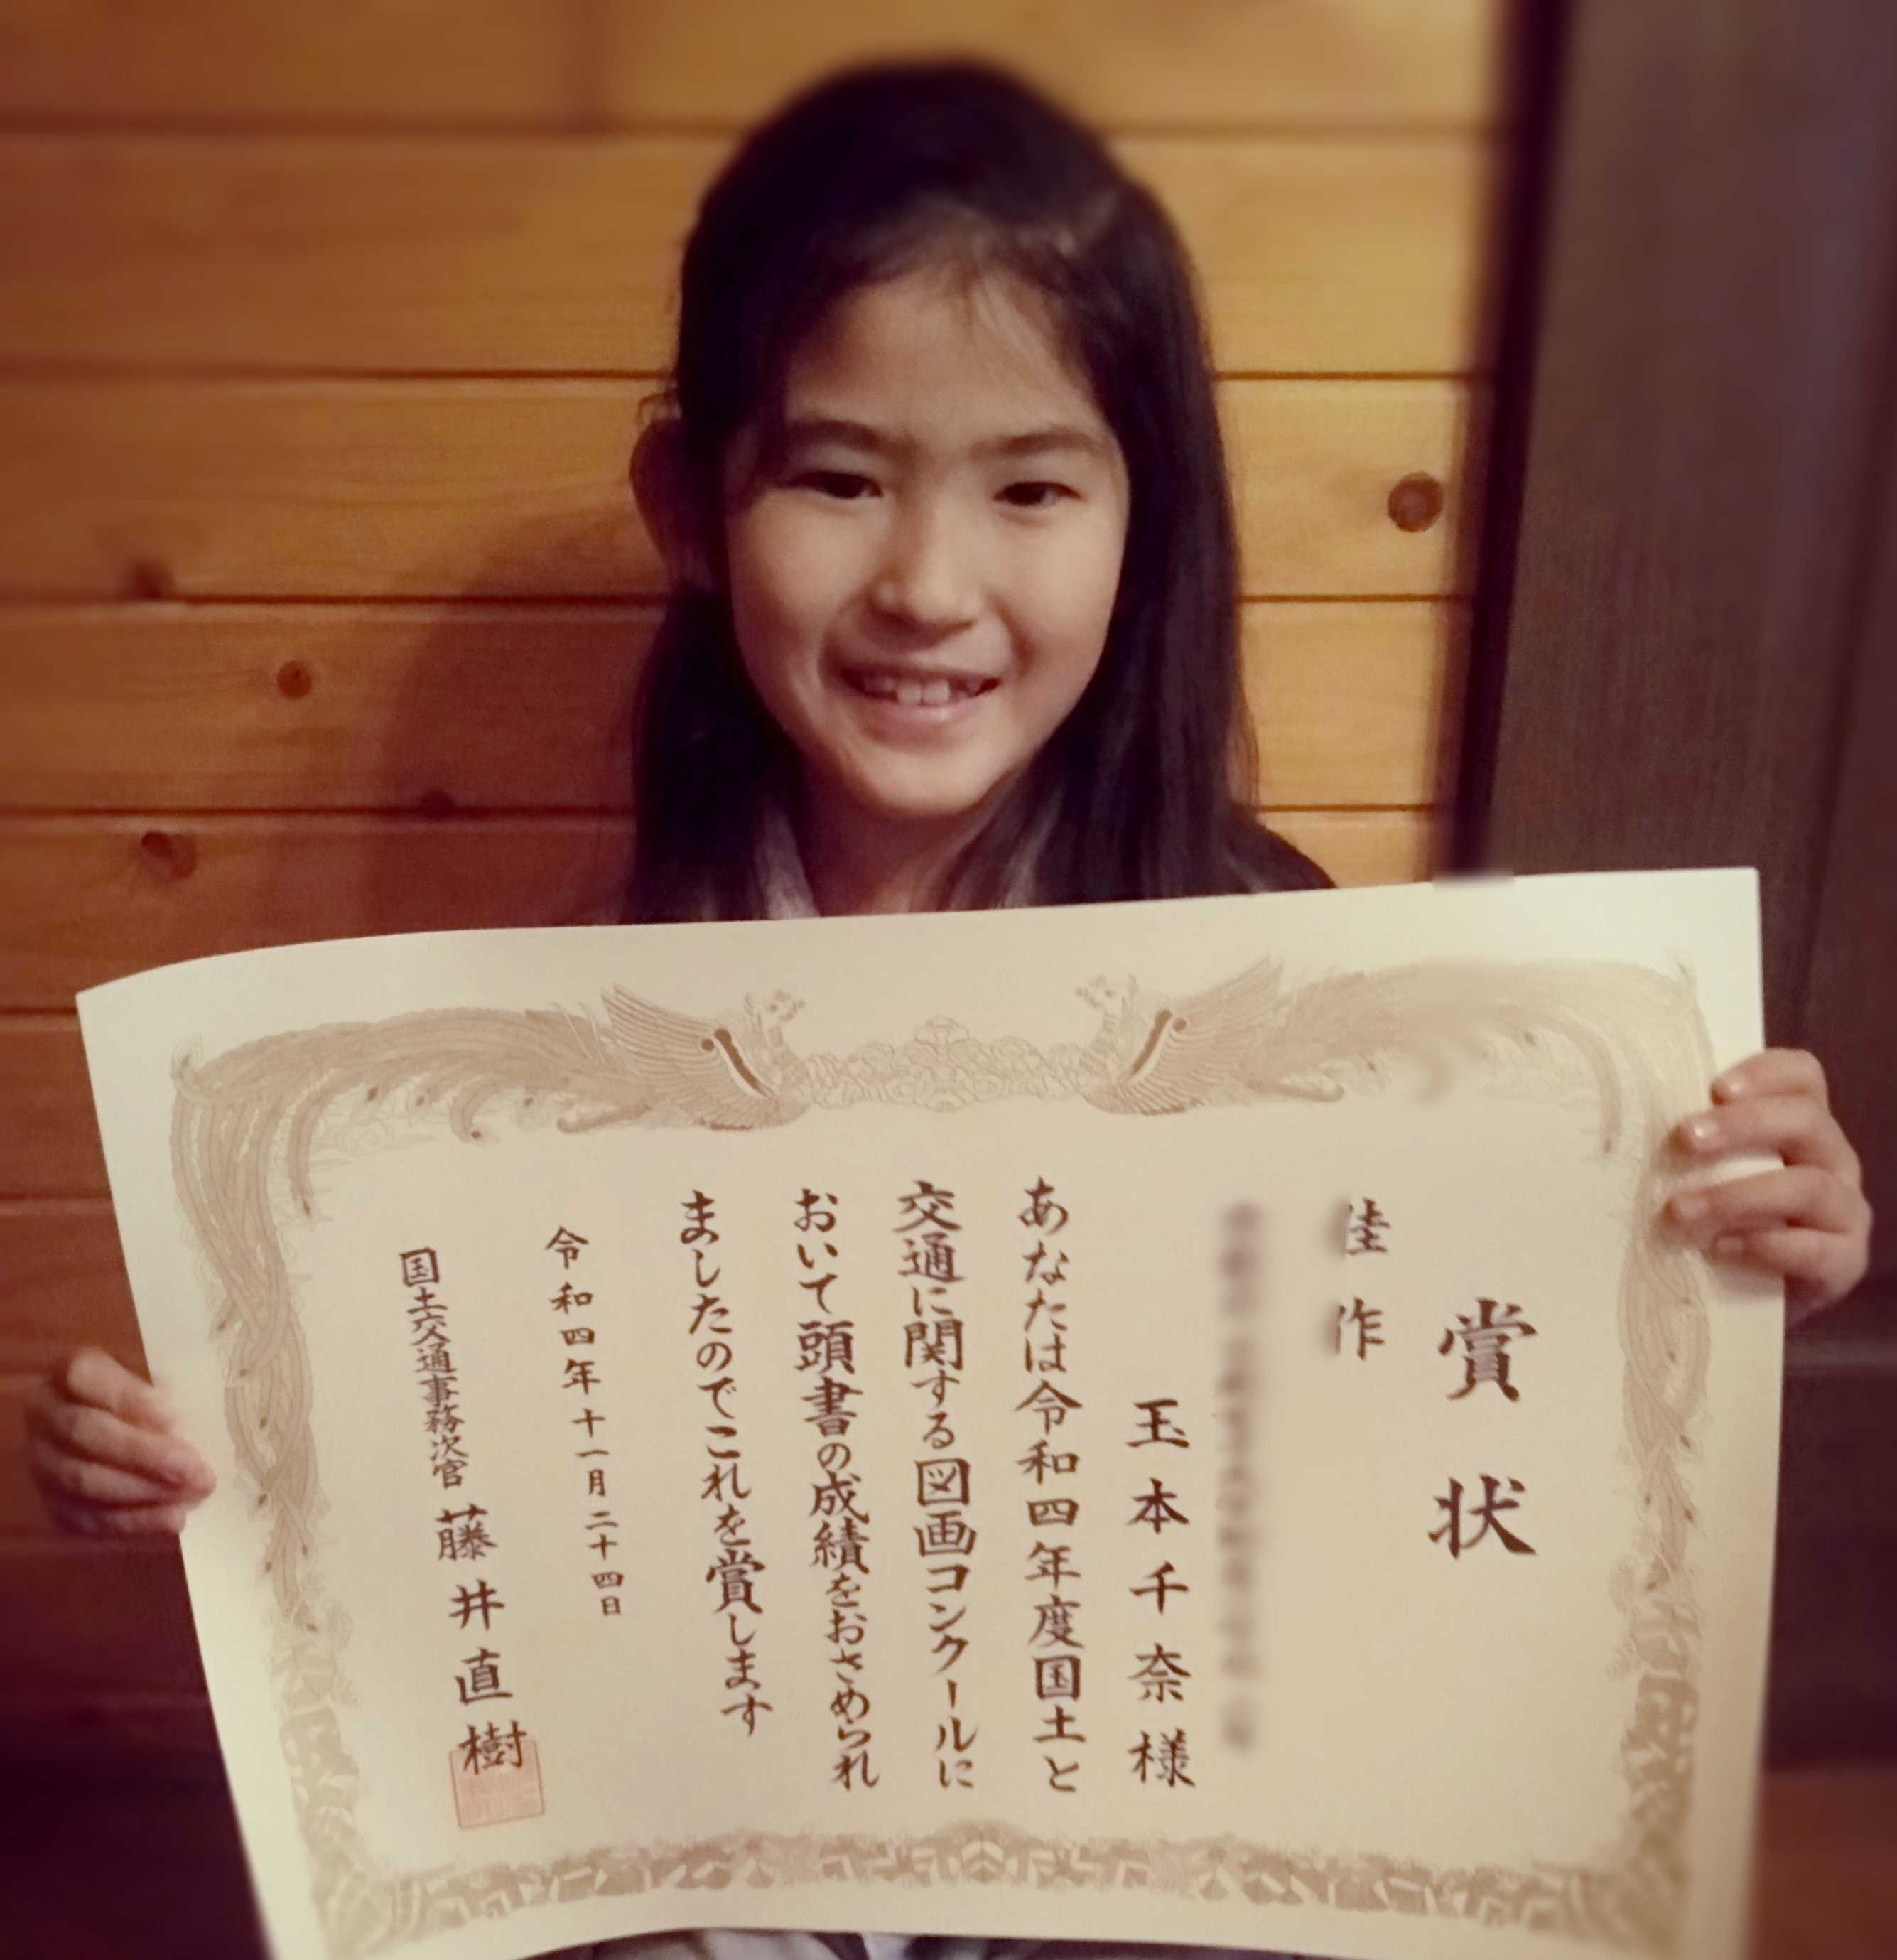 賞状
佳作
玉本千奈様
あなたは令和四年度国土と
交通に関する図画コンクールに
おいて頭書の成績をおさめられ
ましたのでこれを賞します
令和四年十一月二十四日
国土交通事務次官 藤井直樹